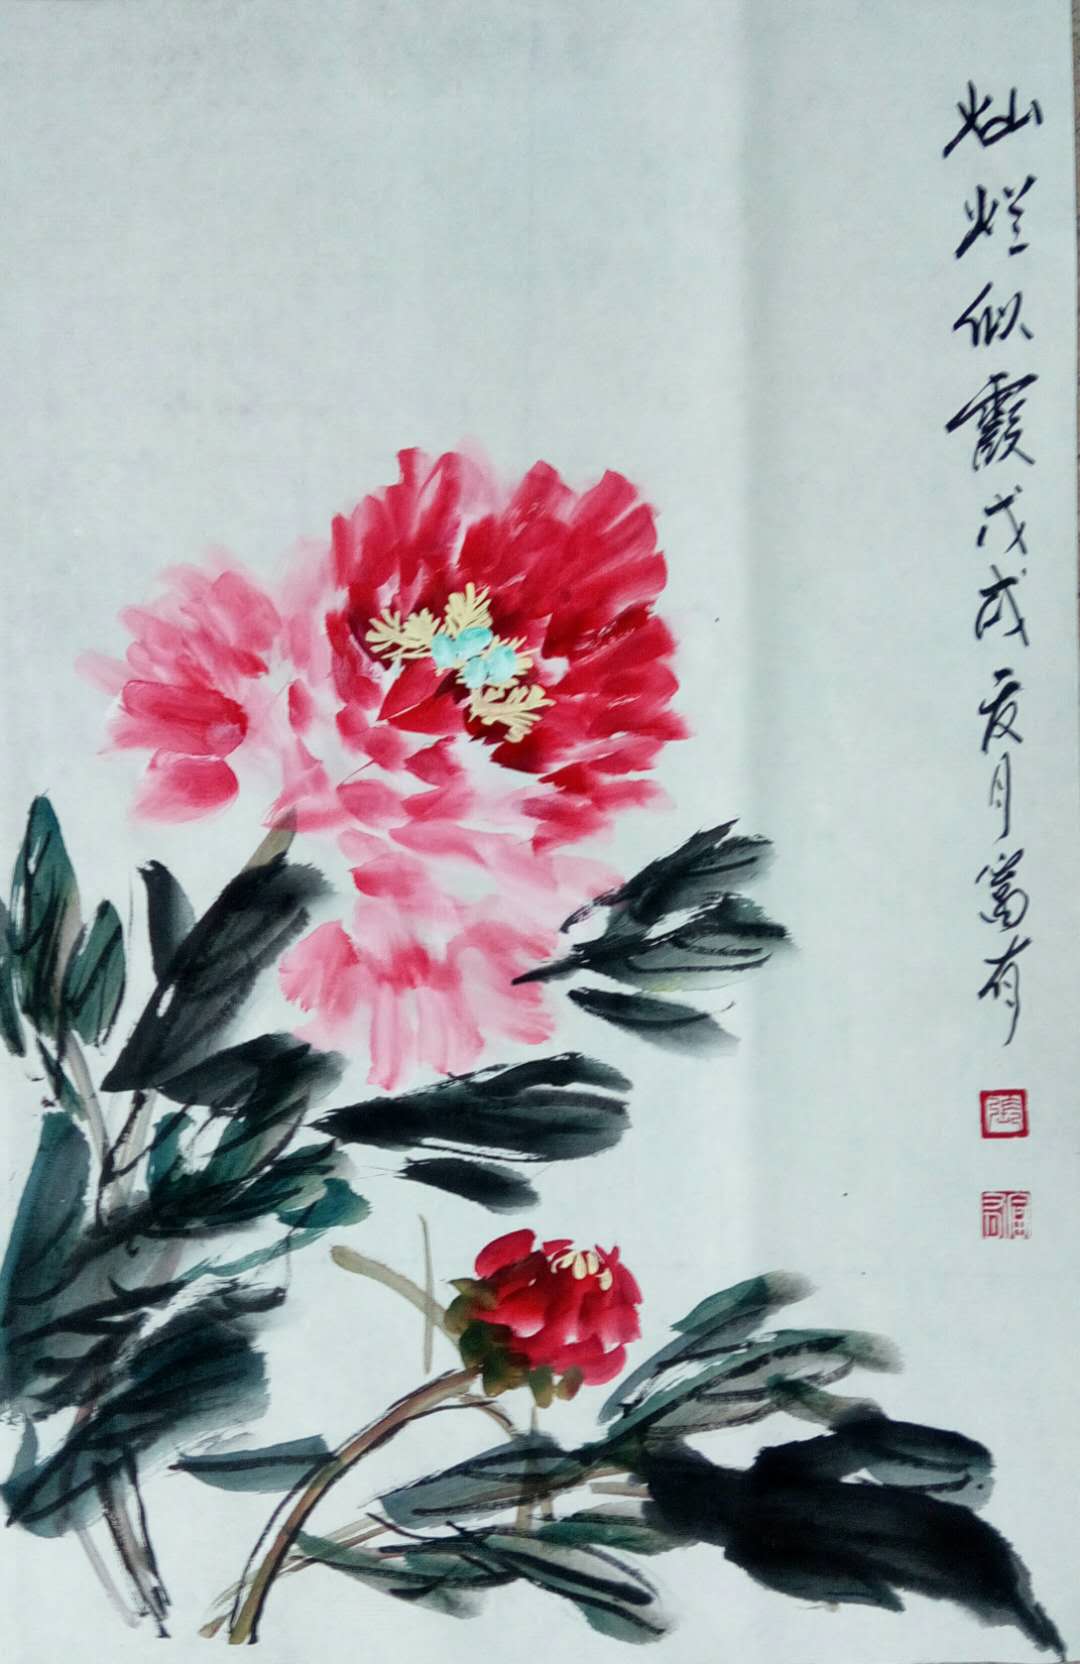 灿烂似霞戊戌夏月富有